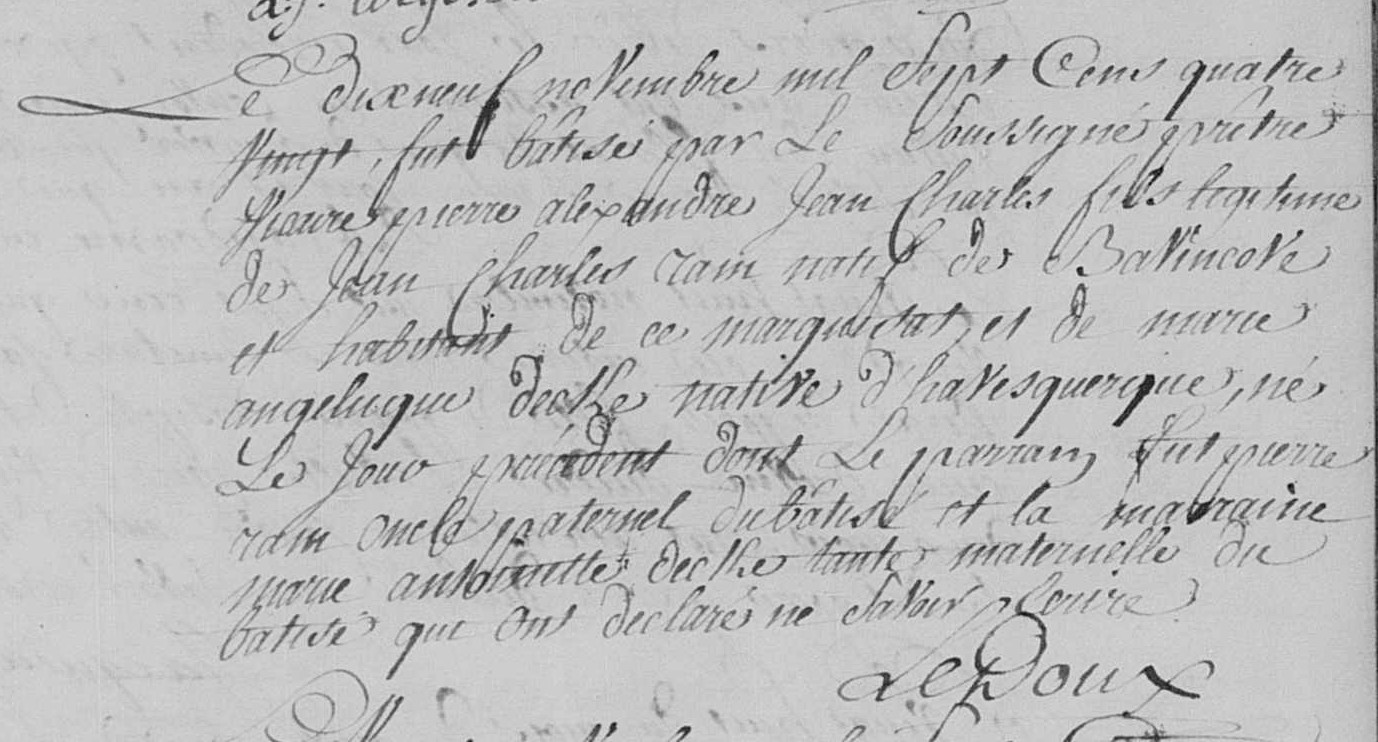 Le dixneuf novembre mil Sept Cens quatre
vingt, fut bâtisé par Le Soussigné prêtre
vicaire pierre alexandre Jean Charles fils legitime
de Jean Charles cam natif de Bavincove
et habitant de ce marquisat, et de marie
angelique decke native d'havesquerque, né
Le Jour précédent dont Le parrain fut pierre
cam oncle paternel du bâtisé et la marraine
marie antoinette decke tante maternelle du
batisé qui ont declaré ne Savoir Ecrire
LeDoux